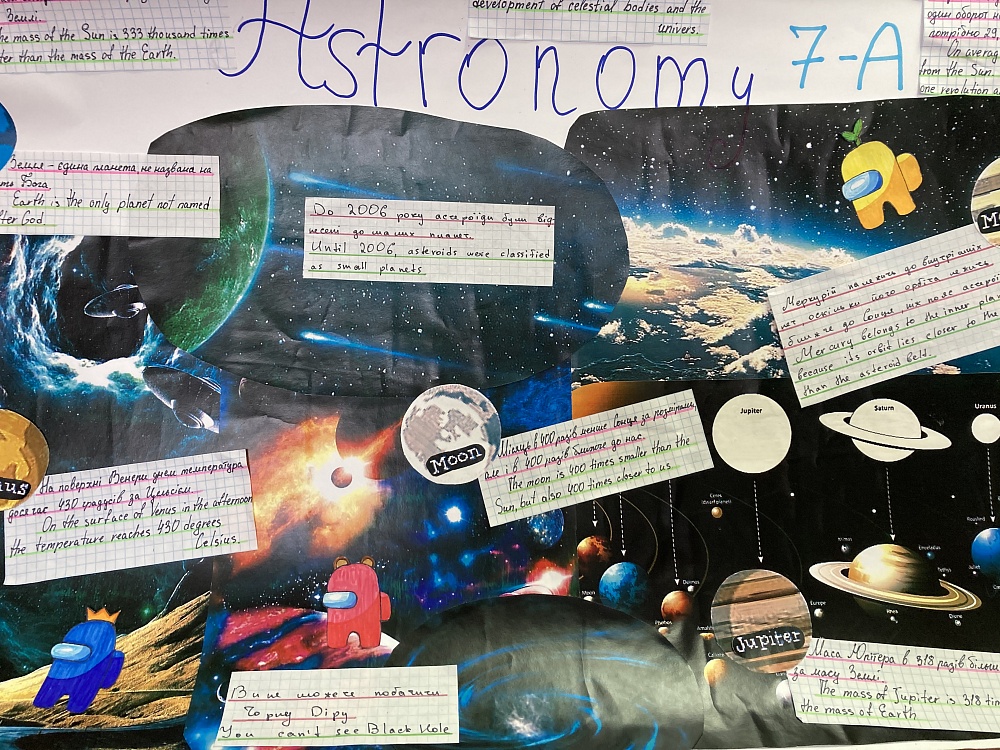 Землі.
he mass of the Sun is 333 thousand times
ter than the mass of the Earth.
development of celestial bodies and the
univers.
Astronomy 7-A
один оборот н
потрібно 29,
On averag
from the Sun.
one revolution a
Земля - єдина планета, не названа на
Бога
Earth is the only planet not named
fter God
До 2006 року астероїди були від-
несені до малих планет.
Until 2006, asteroids were classified
as small planets
M
Меркурій належить до внутрішніх
нет оскільки його орбіта лежить
ближче до Сонця, ніж пояс астеро
Mercury belongs to the inner pla
because its orbit lies closer to the
than the asteroid belt.
Moon
Місяць в 400 разів менше Сонця за розмірами,
але і в 400 разів ближче до нас.
The moon is 400 times smaller than the
Sun, but also 400 times closer to us
Jupiter
Saturn
Uranus
ius
На поверхні Венери днем температура
досягає 430 градусів за Цельсієм.
On the surface of Venus in the afternoon
the temperature reaches 430 degrees
Celsius.
Ceres
(dwarf planet)
Moon
Deimos
Phobos
Europe
Callisto
Enceladus
Tethys
Rhea
Dione
Juliet
Jupiter
Маса Юпітера в 318 разів більш
за масу Землі.
The mass of Jupiter is 318 tim
the mass of Earth
Ви не можете побачити
Чорну Діру
You can't see Black Hole